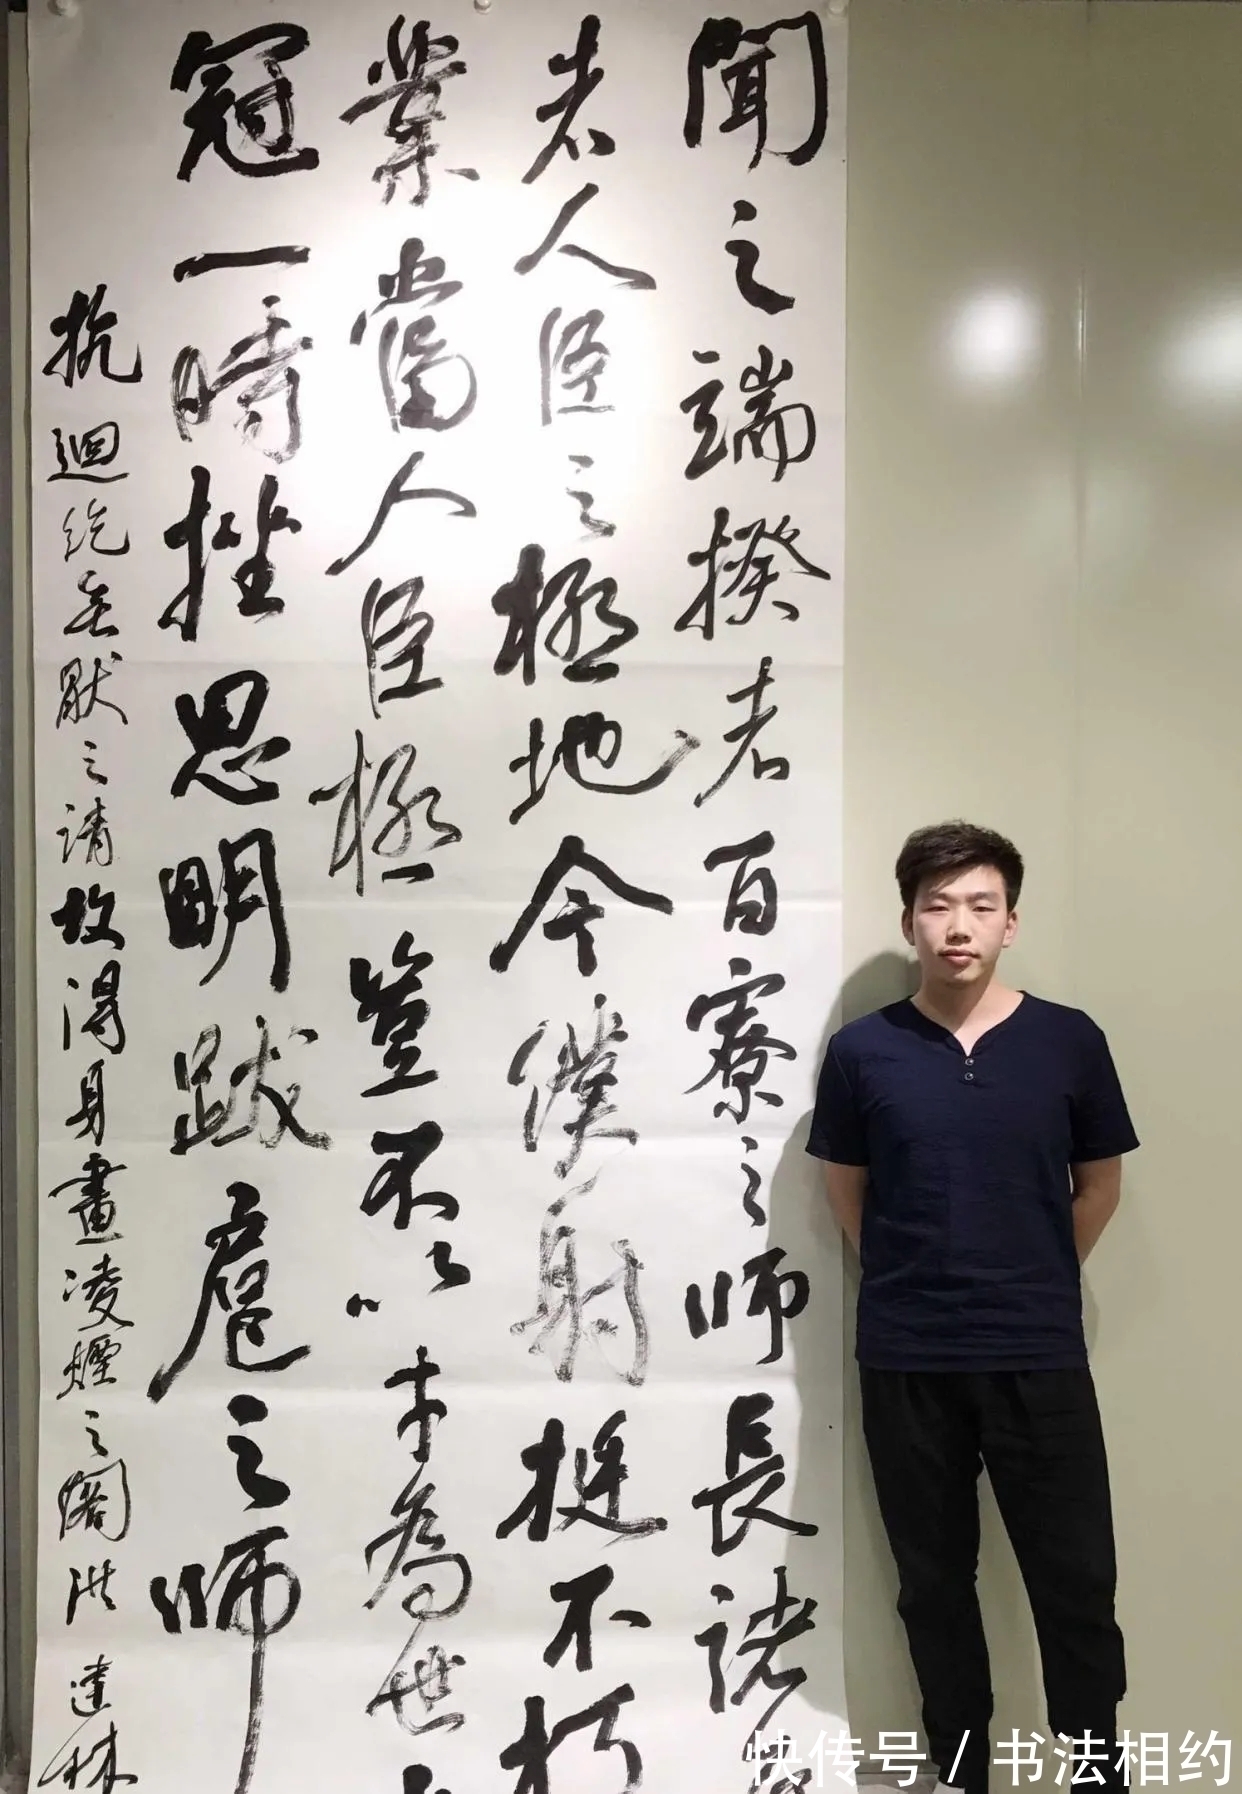 聞之端揆者百寮之師長諸
者人臣之極地今僕射挺不朽
業當人臣極豈不以才為世
冠一時挫思明跋扈之師
抗迴紇無厭之請故得身畫凌煙之閣洪達林
快传号 / 书法相约